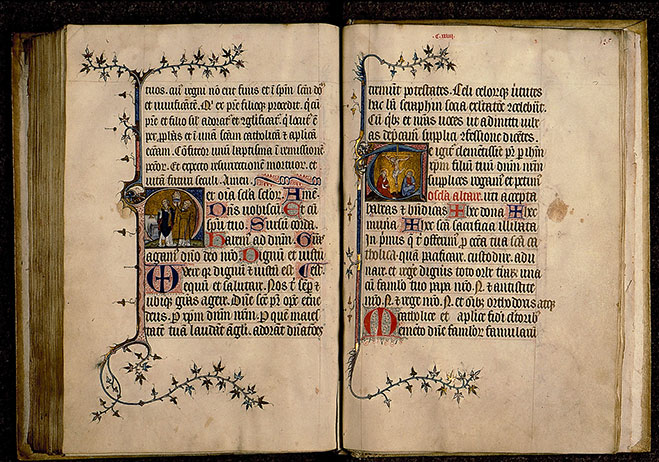 tuos. cui' regni nō erit finis et ī spm̄ scm̄ dō
et uiuificātē. Q' ex pr̄e filioqȝ procedit. q̄ cū
pr̄e et filio sil' adorat' et ꝯglificat' q̄ locut' ē
per pphās et ī unā scām catholicā & aplicā
eccām. Cōfiteor unū baptisma ī remissionē
pctor. Et expecto resurrectionē mortuor. et
uitā futuri seculi. Amen.
Per oīa scl̄a scl̄or. Amē
Dn̄s uobiscū. Et cū
spū tuo. Sursū corda
Habem' ad dn̄m. Grās
agam' dn̄o deo nr̄o. Dignū et iustū
Uere qȝ dignū & iustū est
equū et salutare. Nos t' semp et
ubiqȝ grās agere. Dn̄e sc̄e pr̄ oēps etn̄e
deus. P xpm̄ dn̄m nr̄m. P quē maies
tatē tuā laudāt āgli. adorāt dn̄atōes
c. xxiiij
tremūt potestates. Celi celorqȝ ūtutes
hac bt̄a seraphin socia exltatōe ꝯcelebrāt.
Cū qbꝫ et nr̄as uoces ut admitti iube
as depcam' supplici ꝯfessione dicētes.
Te igit' clemētissie pr̄ p ihm̄
xpm̄ filiū tuū dn̄m nr̄m
supplices rogam' et petim'
oscl̄a altare. uti accepta
habeas & bn̄dicas ✠ hec dona ✠ hec
munia ✠ hec scā sacrificia illibata
In pimis q̄ t' offerim' p eccā tua scā ca
tholica quā pacificare. custodire. adu
nare et rege digneris toto orbe tēraꝝ una
cū famlo tuo papa nr̄o .N. & antistite
nr̄o .N. & rege nr̄o .N. et oībꝫ orthodoxis atqȝ
catholice et aplice fidei cltoribꝫ
Memēto dn̄e famlor famularū